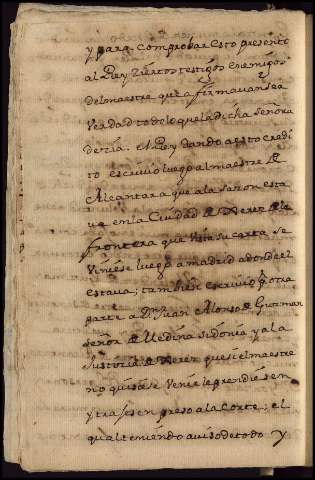 y para comprobar esto presento
al Rey ziertos testigos enemigos
del maestre que afirmavan sea
verdad todo lo que la dicha señora
dezia. el Rey dando a esto credi
to escrivio luego al maestre de
Alcantara que a la sazon esta
va en la Ciudad de Xerez de la
frontera que vista su carta se
viniese luego a madrid adonde el
estava; tambien escrivio por otra
parte a Dn Juan Alonso de Guzman
señor de Medina sidonia y a la
Justizia de Xerez que si el maestre
no quisiese venir le prendiesen
y traxesen preso a la corte; el
qual teniendo aviso de todo y